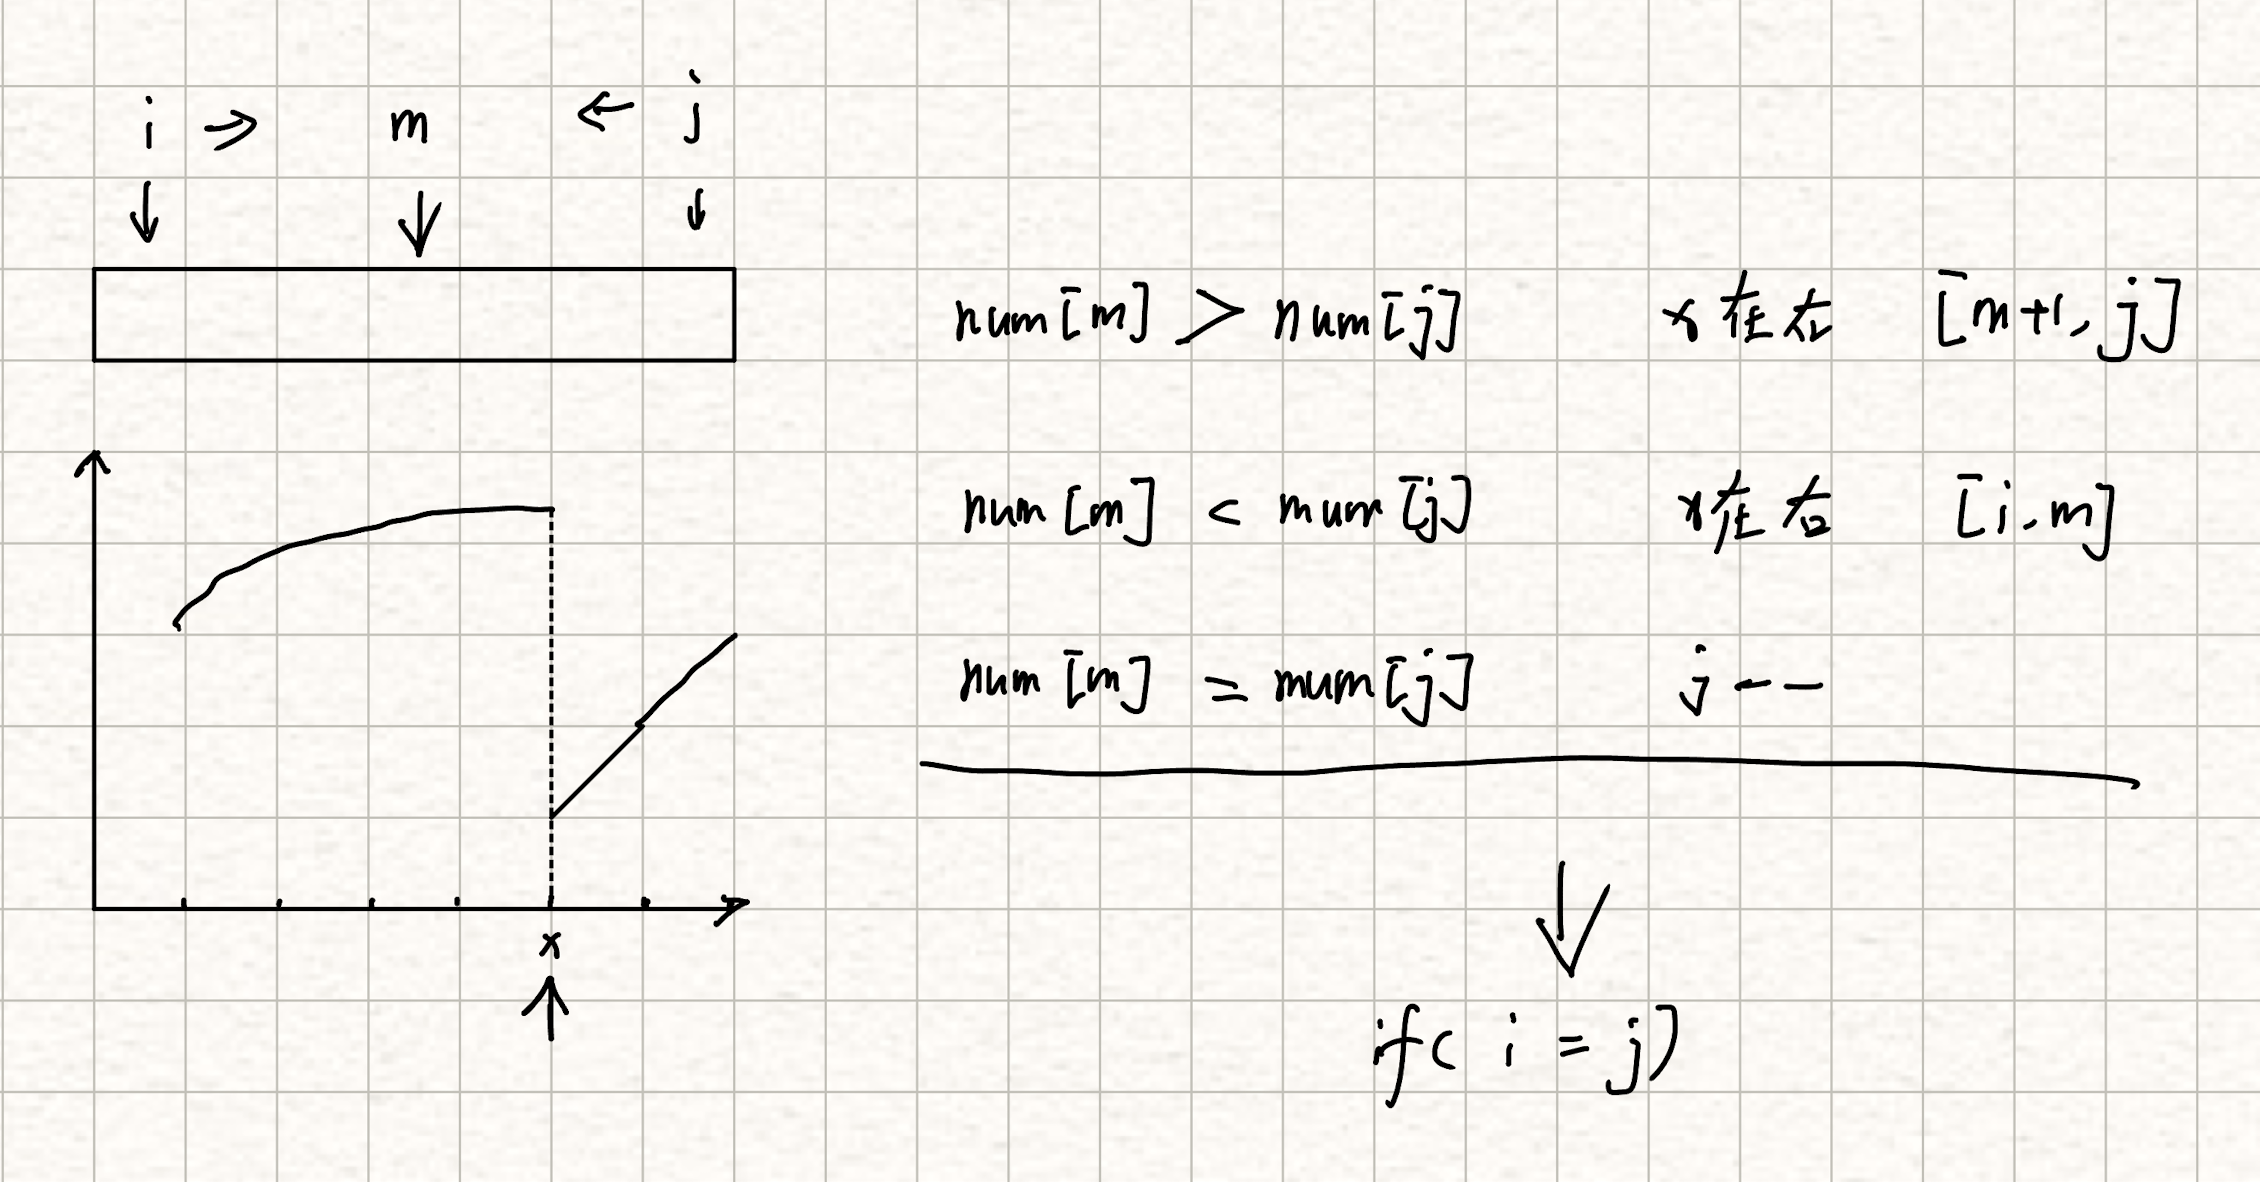 i ⇒ m ← j
num[m] > num[j] x在右 [m+1, j]
num[m] < num[j] x在右 [i, m]
num[m] = num[j] j--
x
if( i = j)